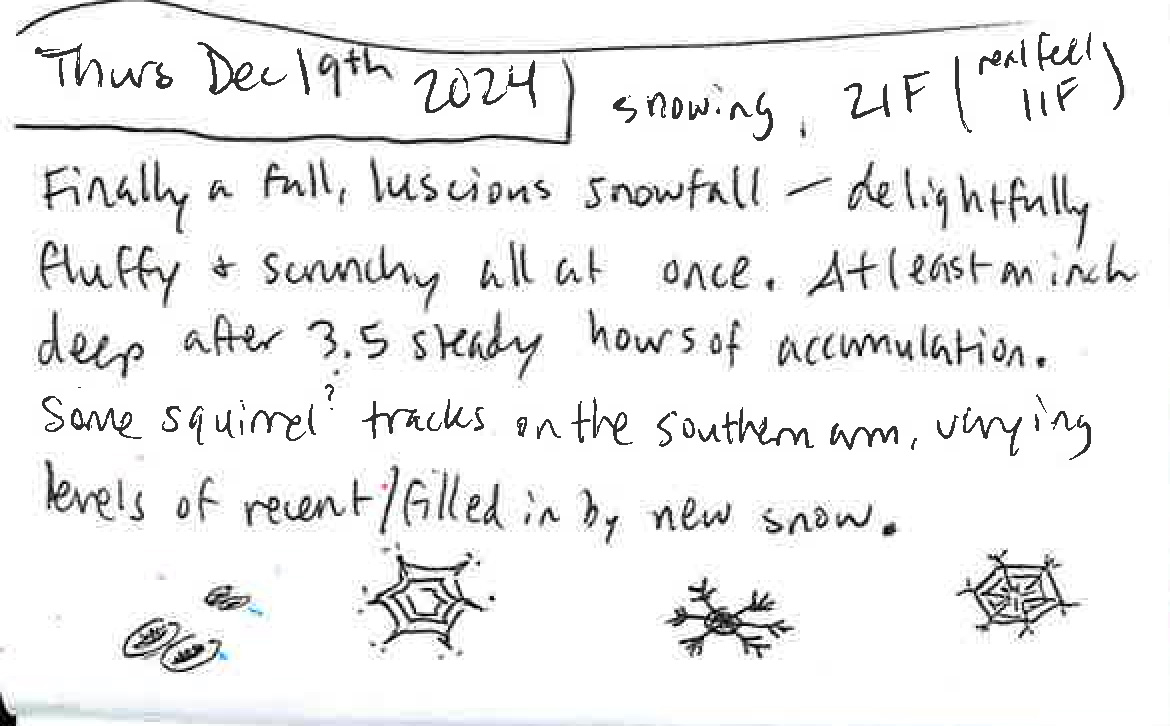 Thurs Dec 19th 2024 snowing, 21F (real feel 11F)
Finally a full, luscious snowfall — delightfully
fluffy & scrunchy all at once. At least an inch
deep after 3.5 steady hours of accumulation.
Some squirrel? tracks on the southern arm, varying
levels of recent/filled in by new snow.